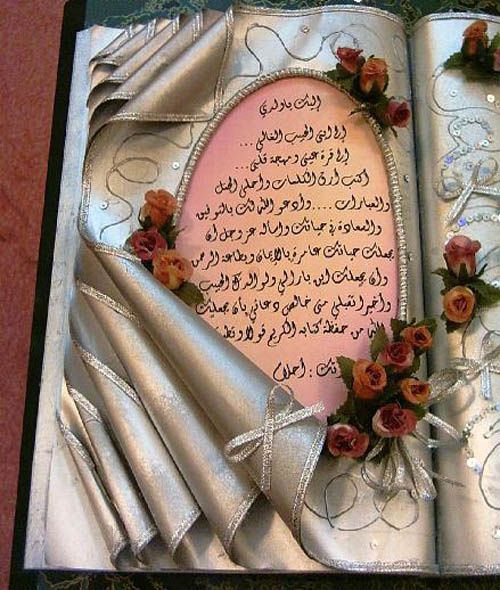 إليك ياولدي
إلى ابني الحبيب الغالي ...
إلى قرة عيني ومهجة قلبي ...
أكتب أرق الكلمات وأحلى الجمل
والعبارات .... وأدعو الله لك بالتوفيق
والسعادة في حياتك وأسأله عز وجل أن
يجعل حياتك عامرة بالإيمان وبطاعة الرحمن
وأن يجعلك ابن بار لأمي ولوالدك الحبيب
وأخيرا تقبلي مني خالص دعائي بأن يجعلك
الله من حفظة كتابه الكريم قولا وتط
تك : أحلام